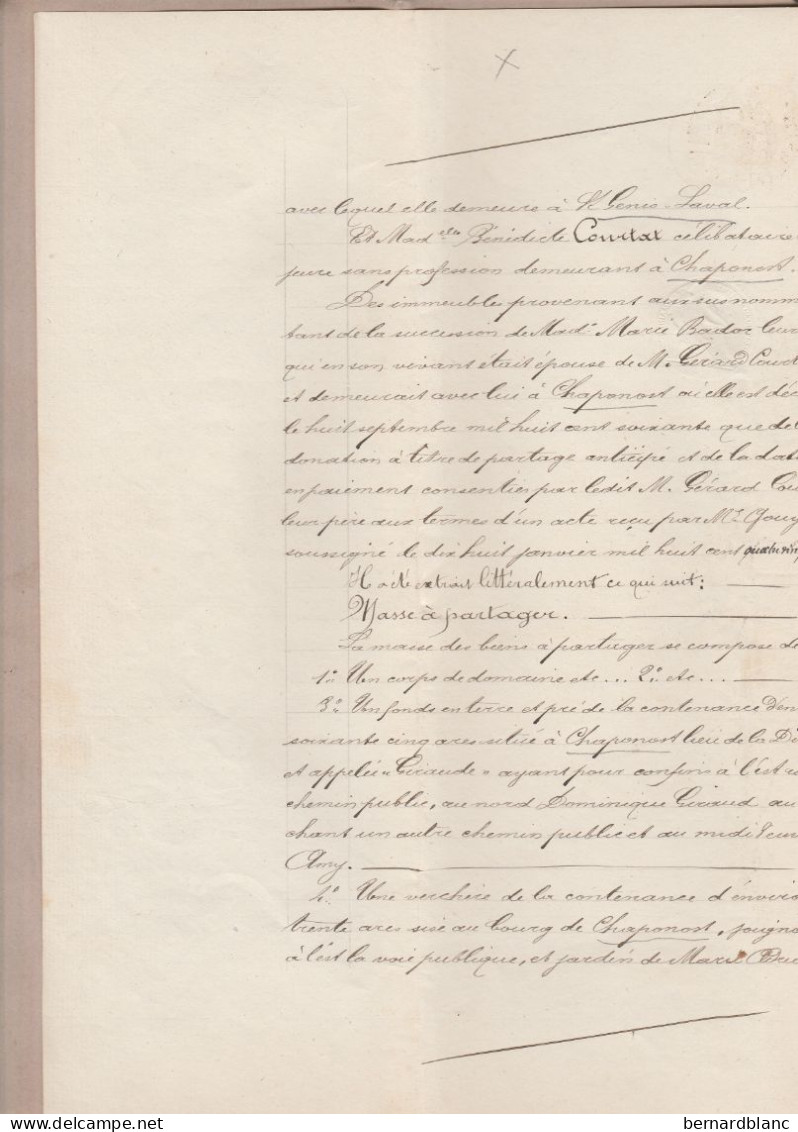 avec lequel elle demeure à St Genis-Laval.
Et Mad elle Bénédicte Courtat célibataire
jeure sans profession demeurant à Chaponost.
Des immeubles provenant aux susnomm
tant de la succession de Made Marie Bador leur
qui en son vivant était épouse de M. Gérard Court
et demeurait avec lui à Chaponost où elle est déc
le huit septembre mil huit cent soixante que de l
donation à titre de partage anticipé et de la dat
en paiement consenties par ledit M. Gérard Cou
leur père aux termes d'un acte reçu par Me Gouy
soussigné le dix huit janvier mil huit cent quatre vin
Il a été extrait littéralement ce qui suit:
Masse à partager.
La masse des biens à partager se compose de
1o Un corps de domaine etc... 2o etc...
3o Un fonds en terre et pré de la contenance d'en
soixante cinq ares situé à Chaponost lieu de la Di
et appelée "Giraude" ayant pour confins à l'est
chemin public, au nord Dominique Giraud au
chant un autre chemin public et au midi
Amy.
4o Une verchère de la contenance d'enviro
trente ares sise au bourg de Chaponost, joigna
à l'est la voie publique, et jardin de Marie
bernardblanc